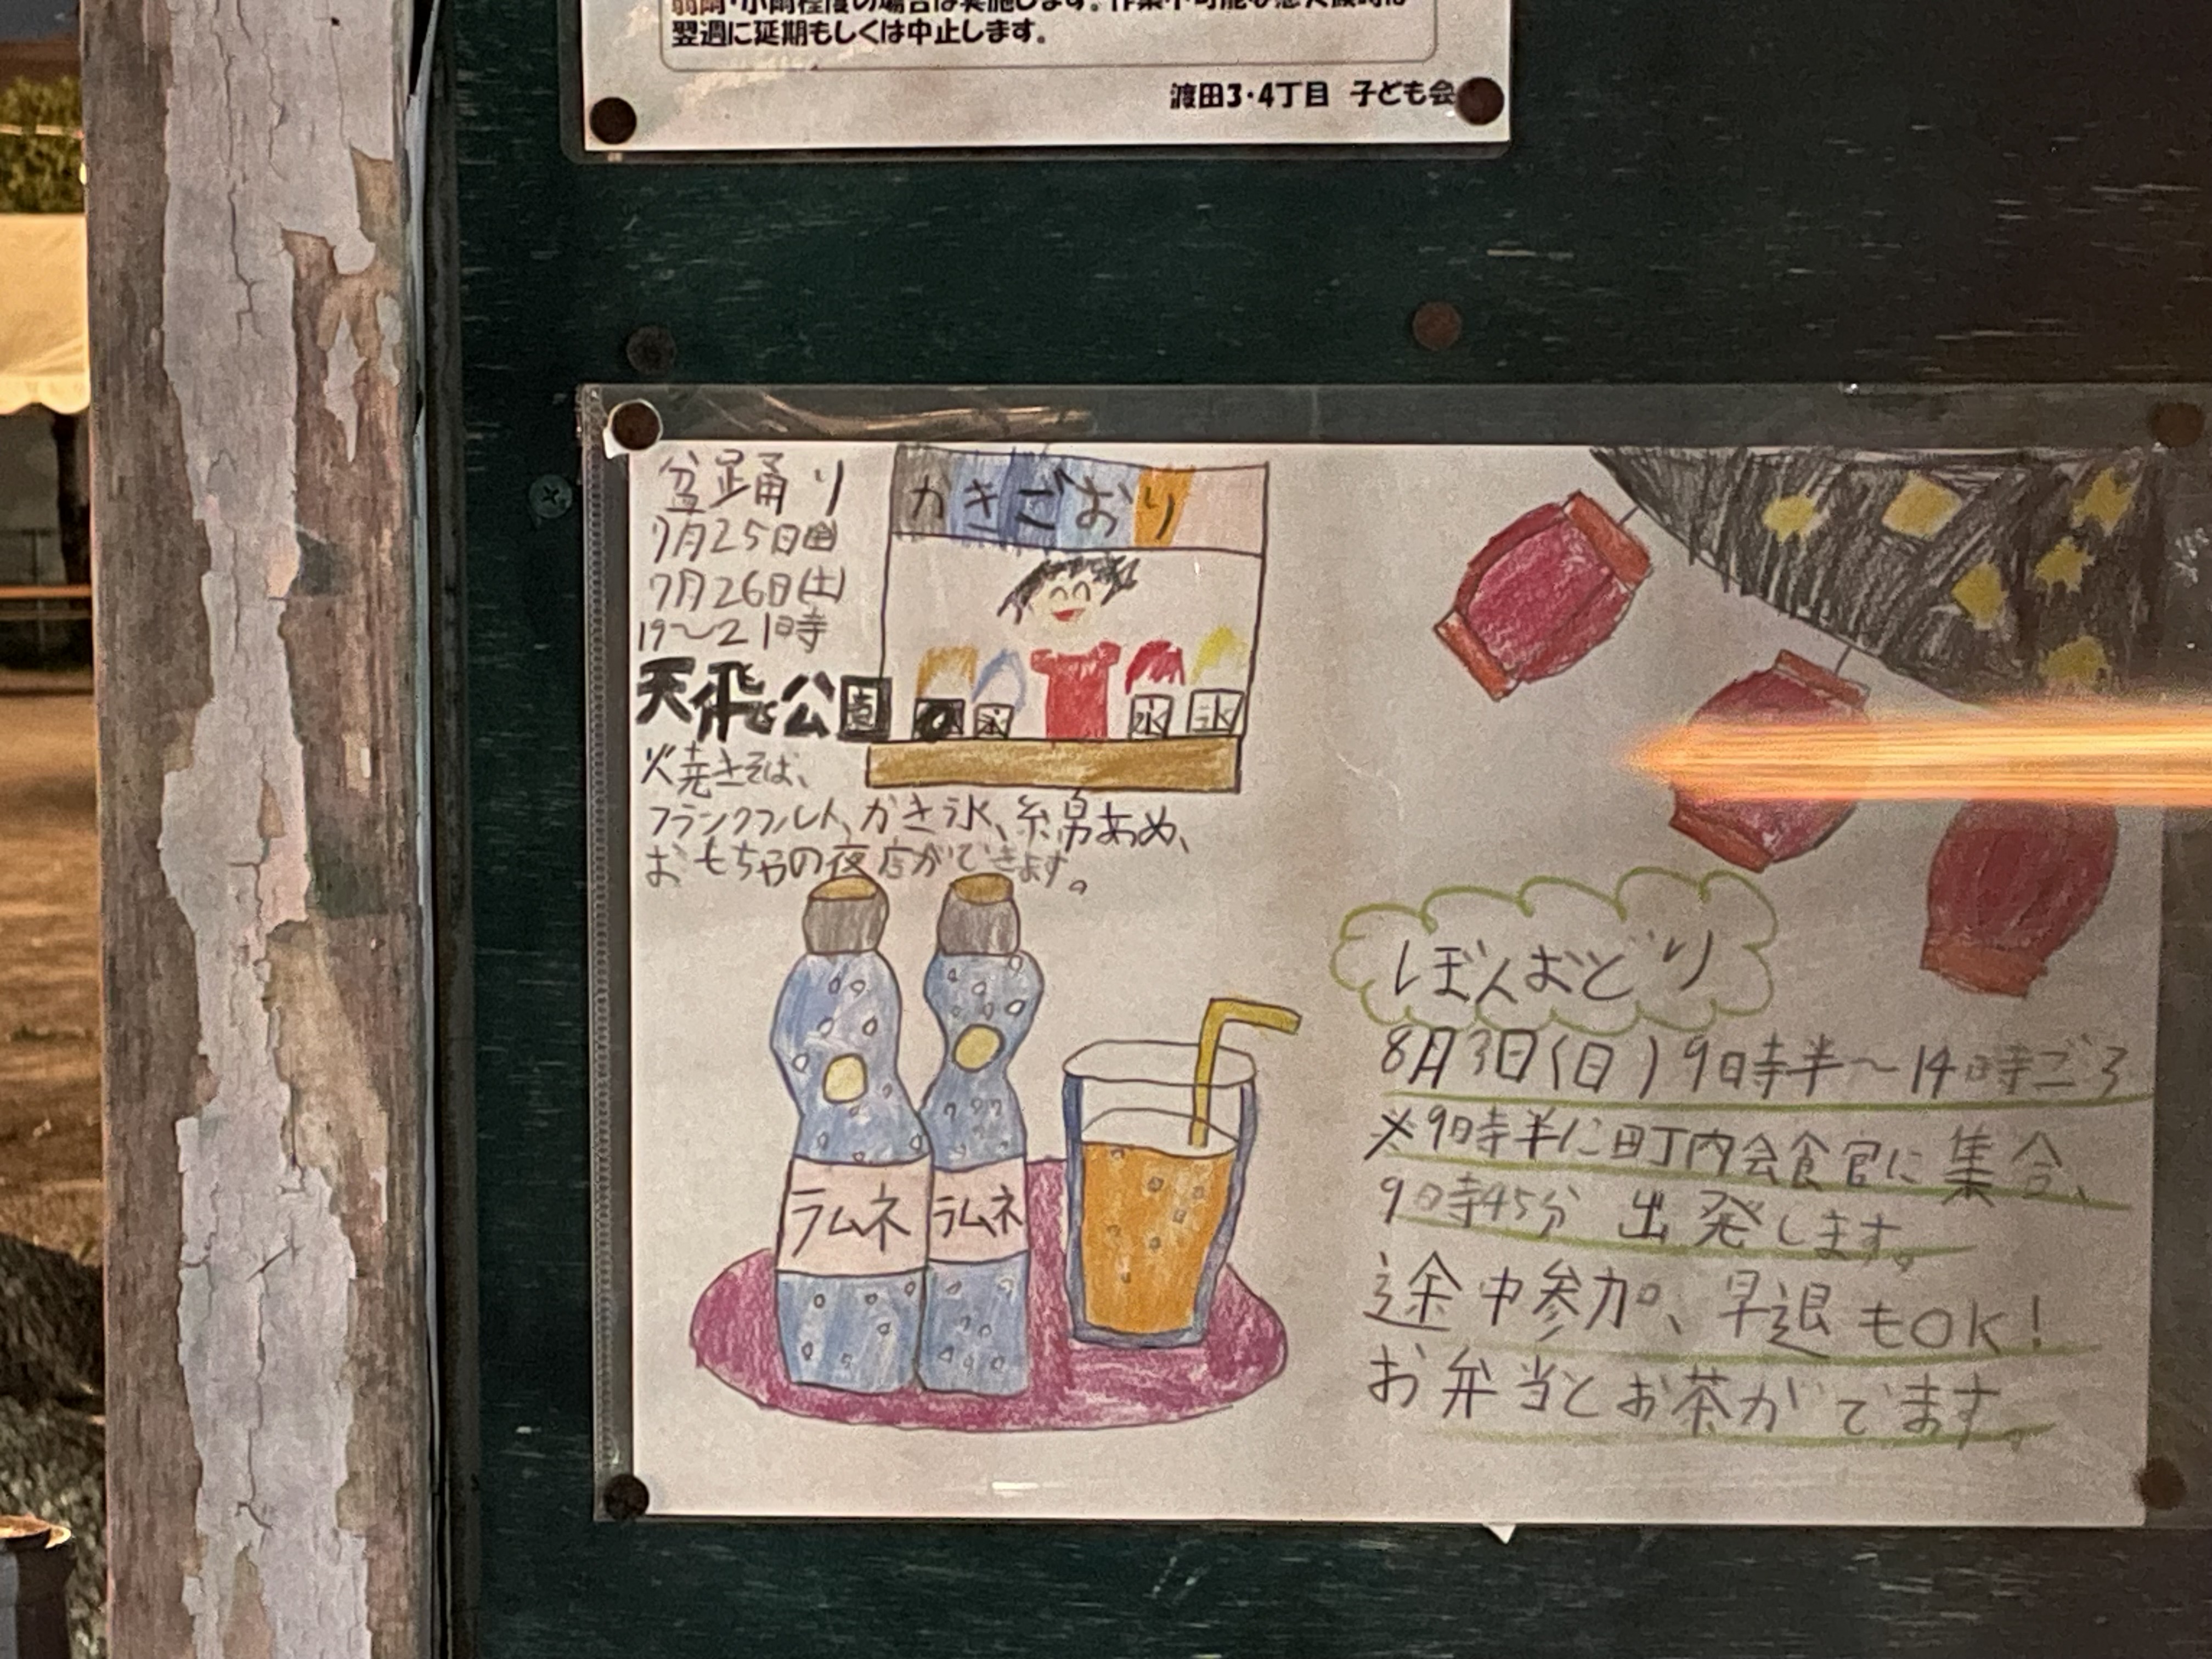 翌週に延期もしくは中止します。
渡田3・4丁目 子ども会
盆踊り
7月25日(金)
7月26日(土)
19～21時
天飛公園
かきごおり
氷
氷
氷
焼きそば、
フランクフルト、かき氷、綿あめ、
おもちゃの夜店がでます。
ラムネ
ラムネ
ぼんおどり
8月3日(日)9時半～14時ごろ
※9時半に町内会館に集合、
9時45分 出発します。
途中参加、早退もOK!
お弁当とお茶がでます。